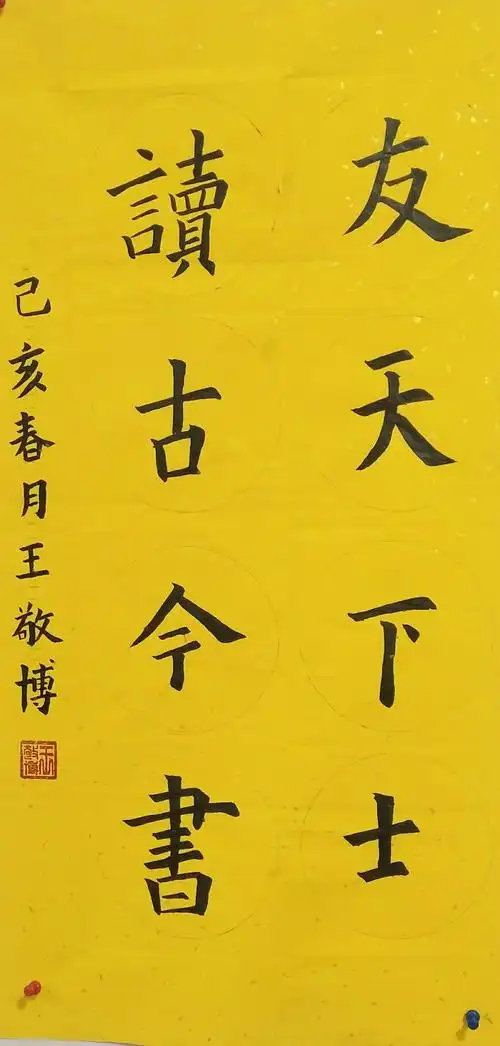 友天下士
讀古今書
己亥春月王敬博